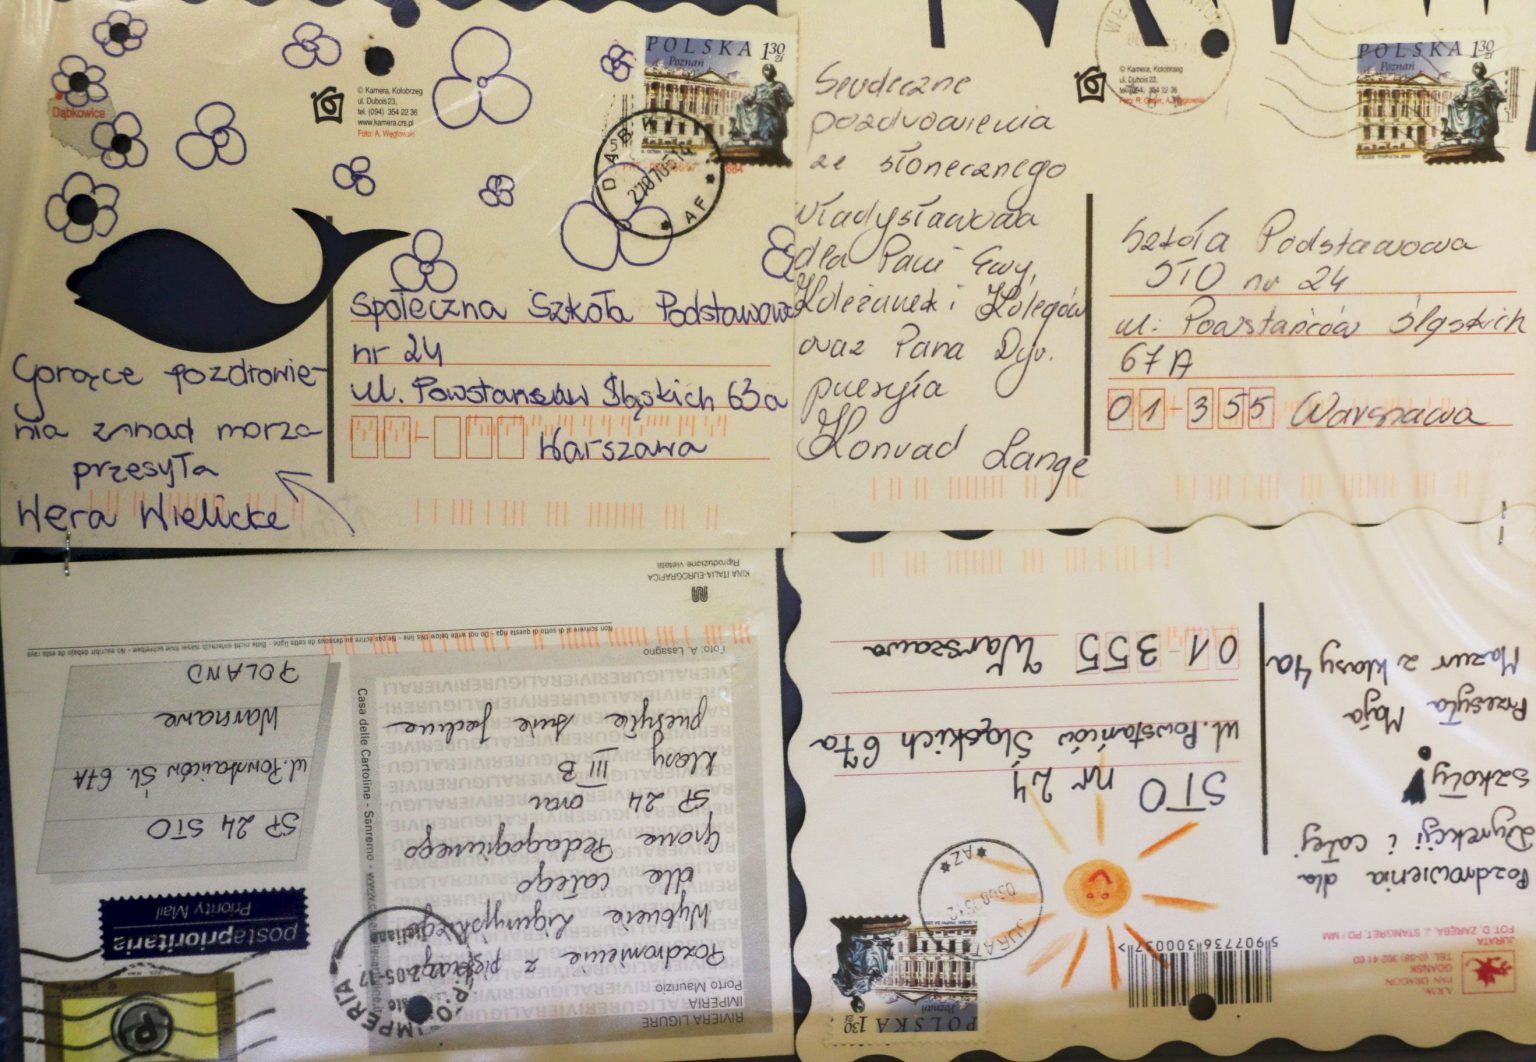 POLSKA 1 30 zł
Poznań
© Kamera, Kołobrzeg
ul. Dubois 23,
tel. (094) 354 22 36
www.kamera.crs.pl
Foto: A. Węglowski
Dąbkowice
Społeczna Szkoła Podstawowa
nr 24
ul. Powstańców Śląskich 63a
Warszawa
Gorące pozdrowie-
nia znnad morza
przesyła
Wera Wielicka
Serdeczne
pozdrowienia
ze słonecznego
Władysławowa
dla Pani Ewy,
Koleżanek i Kolegów
oraz Pana Dyr.
przesyła
Konrad Lange
© Kamera, Kołobrzeg
ul. Dubois 23,
POLSKA 1 30 zł
Poznań
Szkoła Podstawowa
STO nr 24
ul. Powstańców Śląskich
67A
01-355 Warszawa
RIVIERA LIGURE
IMPERIA
Porto Maurizio
Pozdrowienie z pięknego
Wybrzeże Liguryjskiego
dla całego
Grona Pedagogicznego
SP 24 oraz
klasy III B
przesyła
postaprioritaria
Priority Mail
IMPERIA
SP 24 STO
ul. Powstańców Śl. 67A
Warszawa
POLAND
Casa delle Cartoline - Sanremo
Foto: A. Lasagno
Non scrivere al di sotto di questa riga - Do not write below this line
KINA ITALIA-EUROGRAFICA
Riproduzione vietata
JURATA
FOT. D. ZARĘBA, J. STANGRET, PD / MM
A.R.W.
PAN DRAGON
GDAŃSK
5 907736 300057 >
Pozdrowienia dla
Dyrekcji i całej
szkoły!
Przesyła Maja
Mazur z klasy 4a
POLSKA 1 30 zł
Poznań
STO nr 24
ul. Powstańców Śląskich 67a
01-355 Warszawa